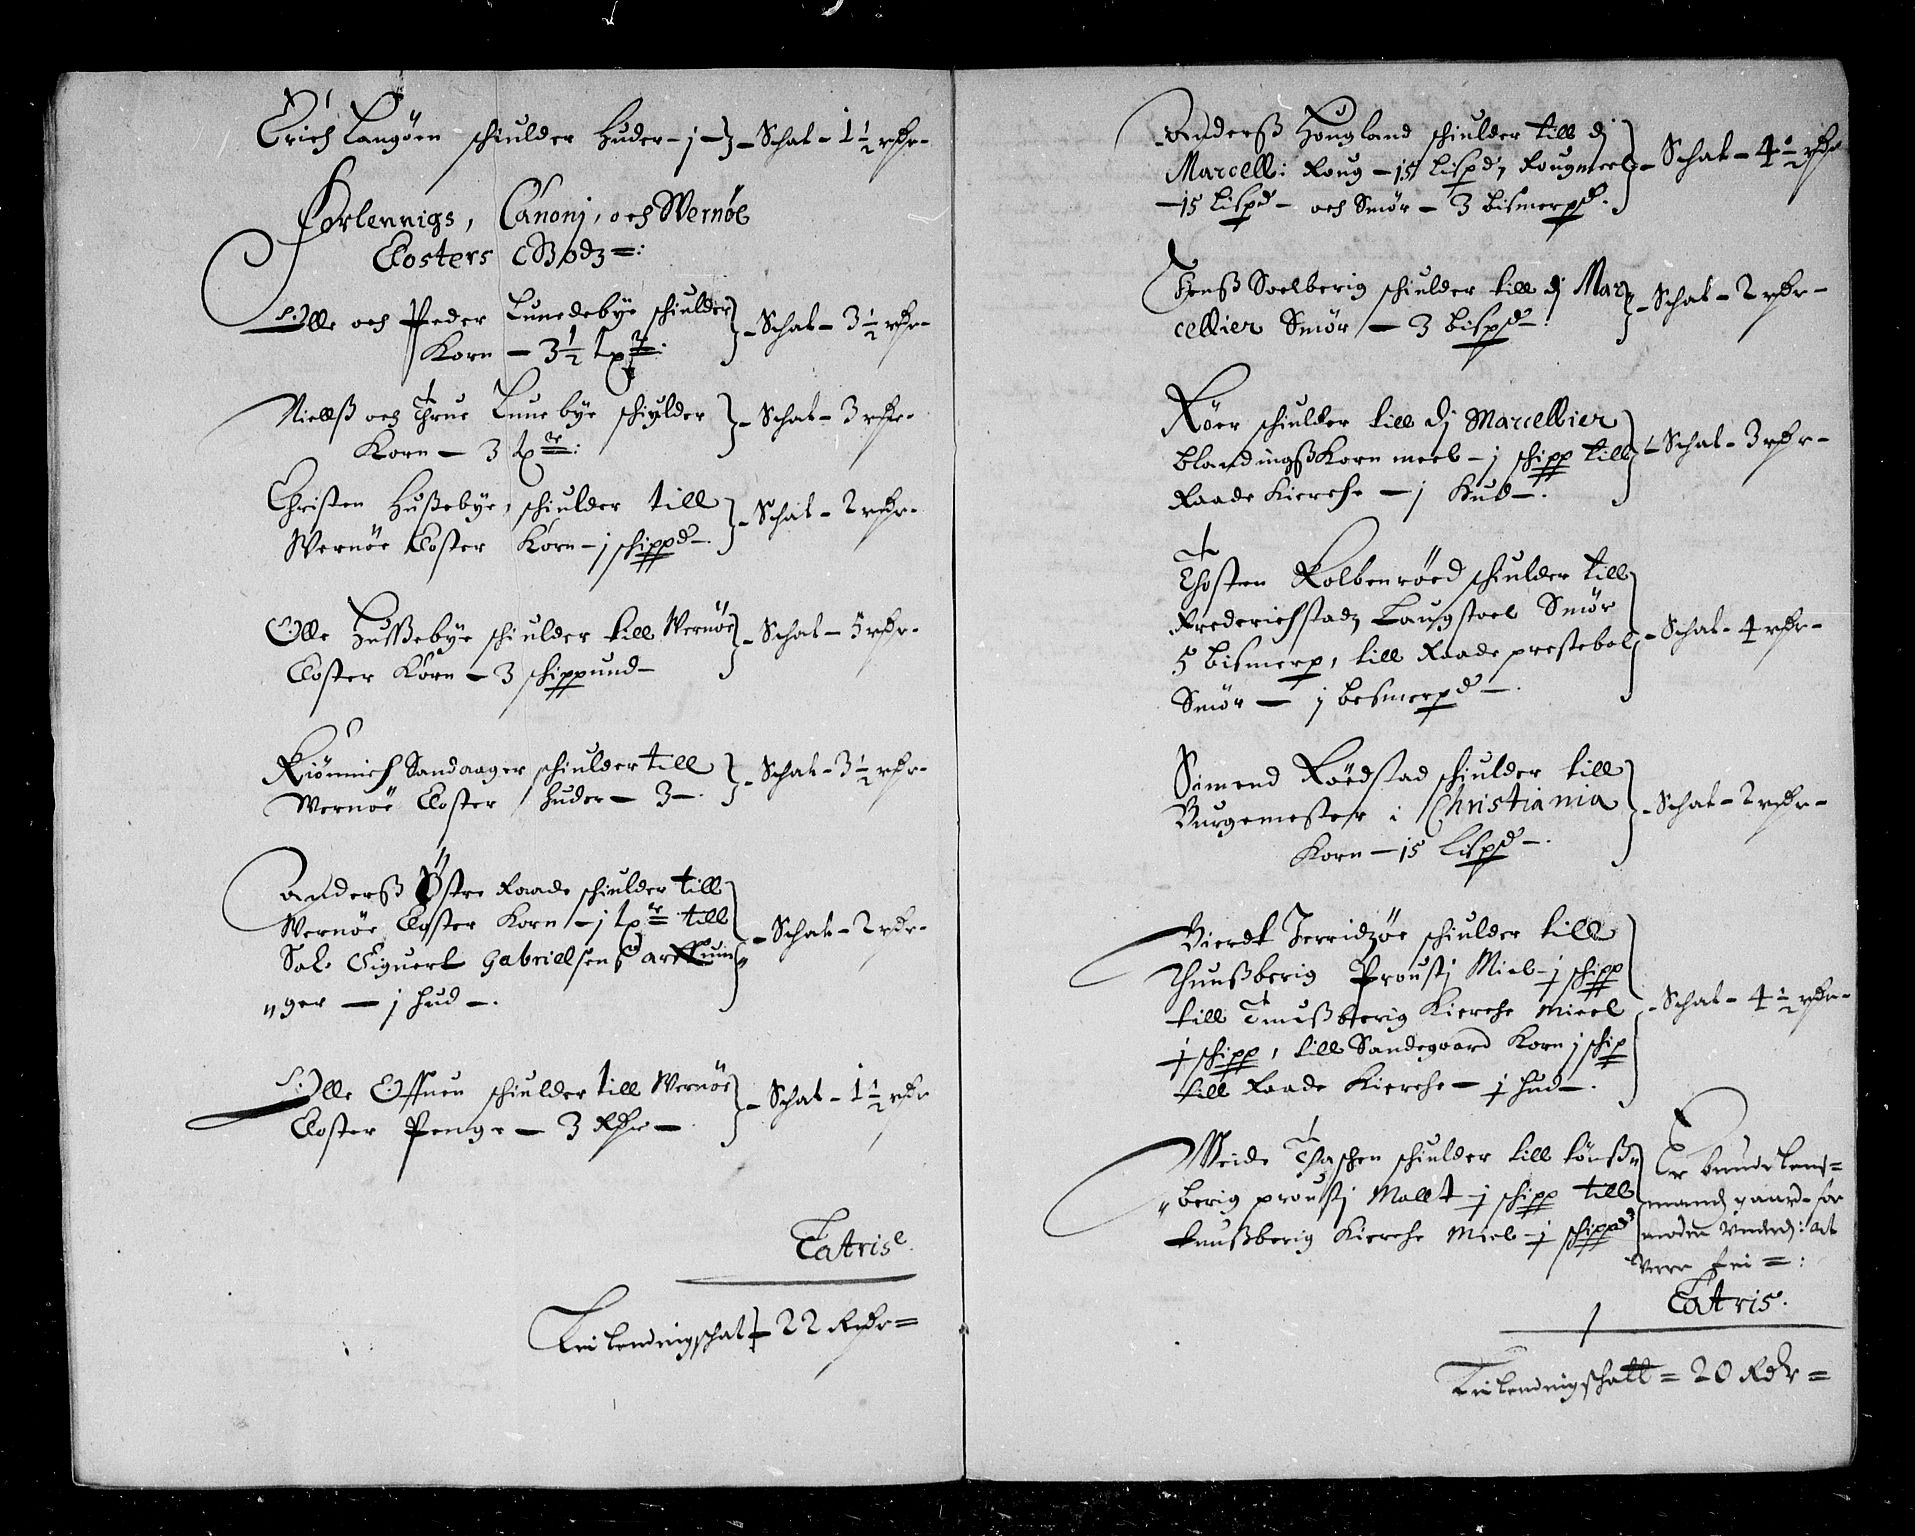 Erich Langöen schiulder Huder - j - Schat - 1 1/2 rdr -
Forlennigs, Canonj, och Wernöe
Closters Godz =:
Olle och Peder Lunedebye schiulder
Korn - 3 1/2 tpr: - Schat - 3 1/2 rdr -
Niellß och Thrue Lunebye schiulder
Korn - 3 tpr: - Schat - 3 rdr -
Christen Hußebye, schiulder till
Wernöe Closter Korn - j schippd - Schat - 2 rdr -
Olle Hußebye schiulder till Wernöe
Closter Korn - 3 schippund - Schat - 5 rdr -
Kiönnich Sandaager schiulder till
Wernöe Closter huder - 3 - Schat - 3 1/2 rdr -
Anderß Östre Raade schiulder till
Wernöe Closter Korn - j tpr till
Sal. Siguert Gabrielsens arffuin
ger - j hud - Schat - 2 rdr -
Olle Offuen schiulder till Wernöe
Closter Penge - 3 Rdr - Schat - 1 1/2 rdr
Latris.
Leilendingschat - 22 Rdr =
Anderß Hougland schiulder till dj
Marcelli: Roug - 15 Lispd, Rougmeel
- 15 Lispd - och Smör - 3 bismerpd. - Schat - 4 1/2 rdr
Jenß Soelberig schiulder till dj Mar
cellier Smör - 3 bispd - Schat - 2 rdr -
Röer schiulder till dj Marcellier
blandingß Korn meel - j schipp till
Raade Kierche - j hud - Schat - 3 rdr -
Thosten Kolbenröed schiulder till
Frederichstadz Laugstoel Smör
5 bismerp, till Raade prestebol
Smör - j besmerpd - Schat - 4 rdr -
Simend Röedstad schiulder till
Burgemester i Christiania
Korn - 15 Lispd - Schat - 2 rdr -
Bierdt Jerridzöe schiulder till
Thunßberig Proustj Miel - j schipp
till Tnußberig Kierche Mieel
j schipp, till Sandegaard Korn j schip
till Raade Kierche - j hud - Schat - 4 1/2 rdr -
Weide Thaschen schiulder till tönß
berig proustj Mallt - j schipp till
tnußberig Kierche Miel - j schippd
Er bunde lens =
mandz gaard, for
moden underd: at
vere fri = :
Latris.
Leilendingschatt = 20 Rdr =